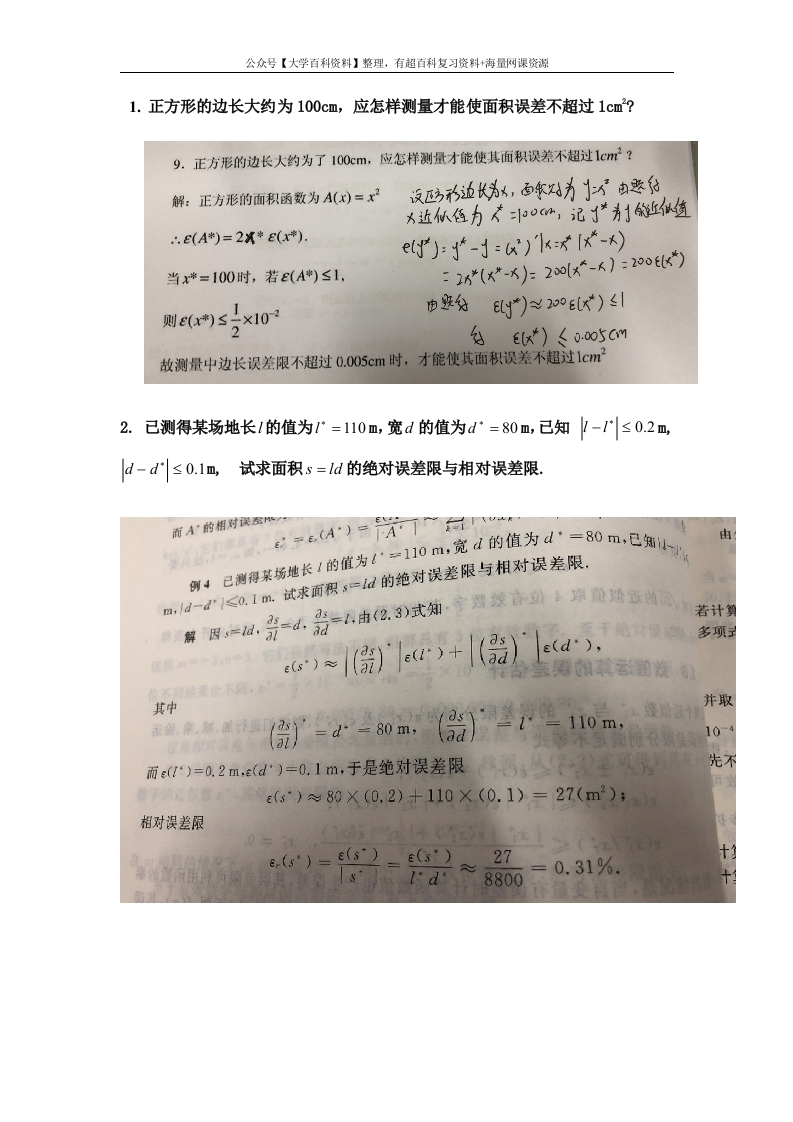 公众号【大学百科资料】整理，有超百科复习资料+海量网课资源
1. 正方形的边长大约为 100cm，应怎样测量才能使面积误差不超过 1cm²?
9．正方形的边长大约为了 100cm，应怎样测量才能使其面积误差不超过1cm²？
解：正方形的面积函数为 A(x) = x²
∴ε(A*) = 2x* ε(x*).
当 x* = 100 时，若 ε(A*) ≤ 1,
则 ε(x*) ≤ 1/2 ×10⁻²
故测量中边长误差限不超过 0.005cm 时，才能使其面积误差不超过1cm²
设正方形边长为x，面积为 y=x² 由题
x近似值为 x* =100cm，记 y* 为y的近似值
e(y*) = y* - y = (x²)'|x=x* (x* - x)
= 2x*(x*-x) = 200(x*-x) = 200ε(x*)
由题 ε(y*) ≈ 200ε(x*) ≤ 1
ε(x*) ≤ 0.005cm
2. 已测得某场地长 l 的值为 l* = 110 m, 宽 d 的值为 d* = 80 m, 已知 |l − l*| ≤ 0.2 m,
|d − d*| ≤ 0.1m, 试求面积 s = ld 的绝对误差限与相对误差限.
而 A* 的相对误差限
εr* = εr(A*) =
由
例 4 已测得某场地长 l 的值为 l* =110 m,宽 d 的值为 d* =80 m,已知
m, |d−d*|≤0.1 m. 试求面积 s=ld 的绝对误差限与相对误差限.
若计算
多项式
解 因 s=ld, ∂s/∂l=d, ∂s/∂d=l, 由(2.3)式知
ε(s*) ≈ |(∂s/∂l)*| ε(l*) + |(∂s/∂d)*| ε(d*),
其中
并取
(∂s/∂l)* = d* = 80 m, (∂s/∂d)* = l* = 110 m,
10⁻⁴
先不
而 ε(l*)=0.2 m, ε(d*)=0.1 m, 于是绝对误差限
ε(s*) ≈ 80×(0.2) + 110×(0.1) = 27(m²);
相对误差限
εr(s*) = ε(s*)/|s*| = ε(s*)/l*d* ≈ 27/8800 = 0.31%.